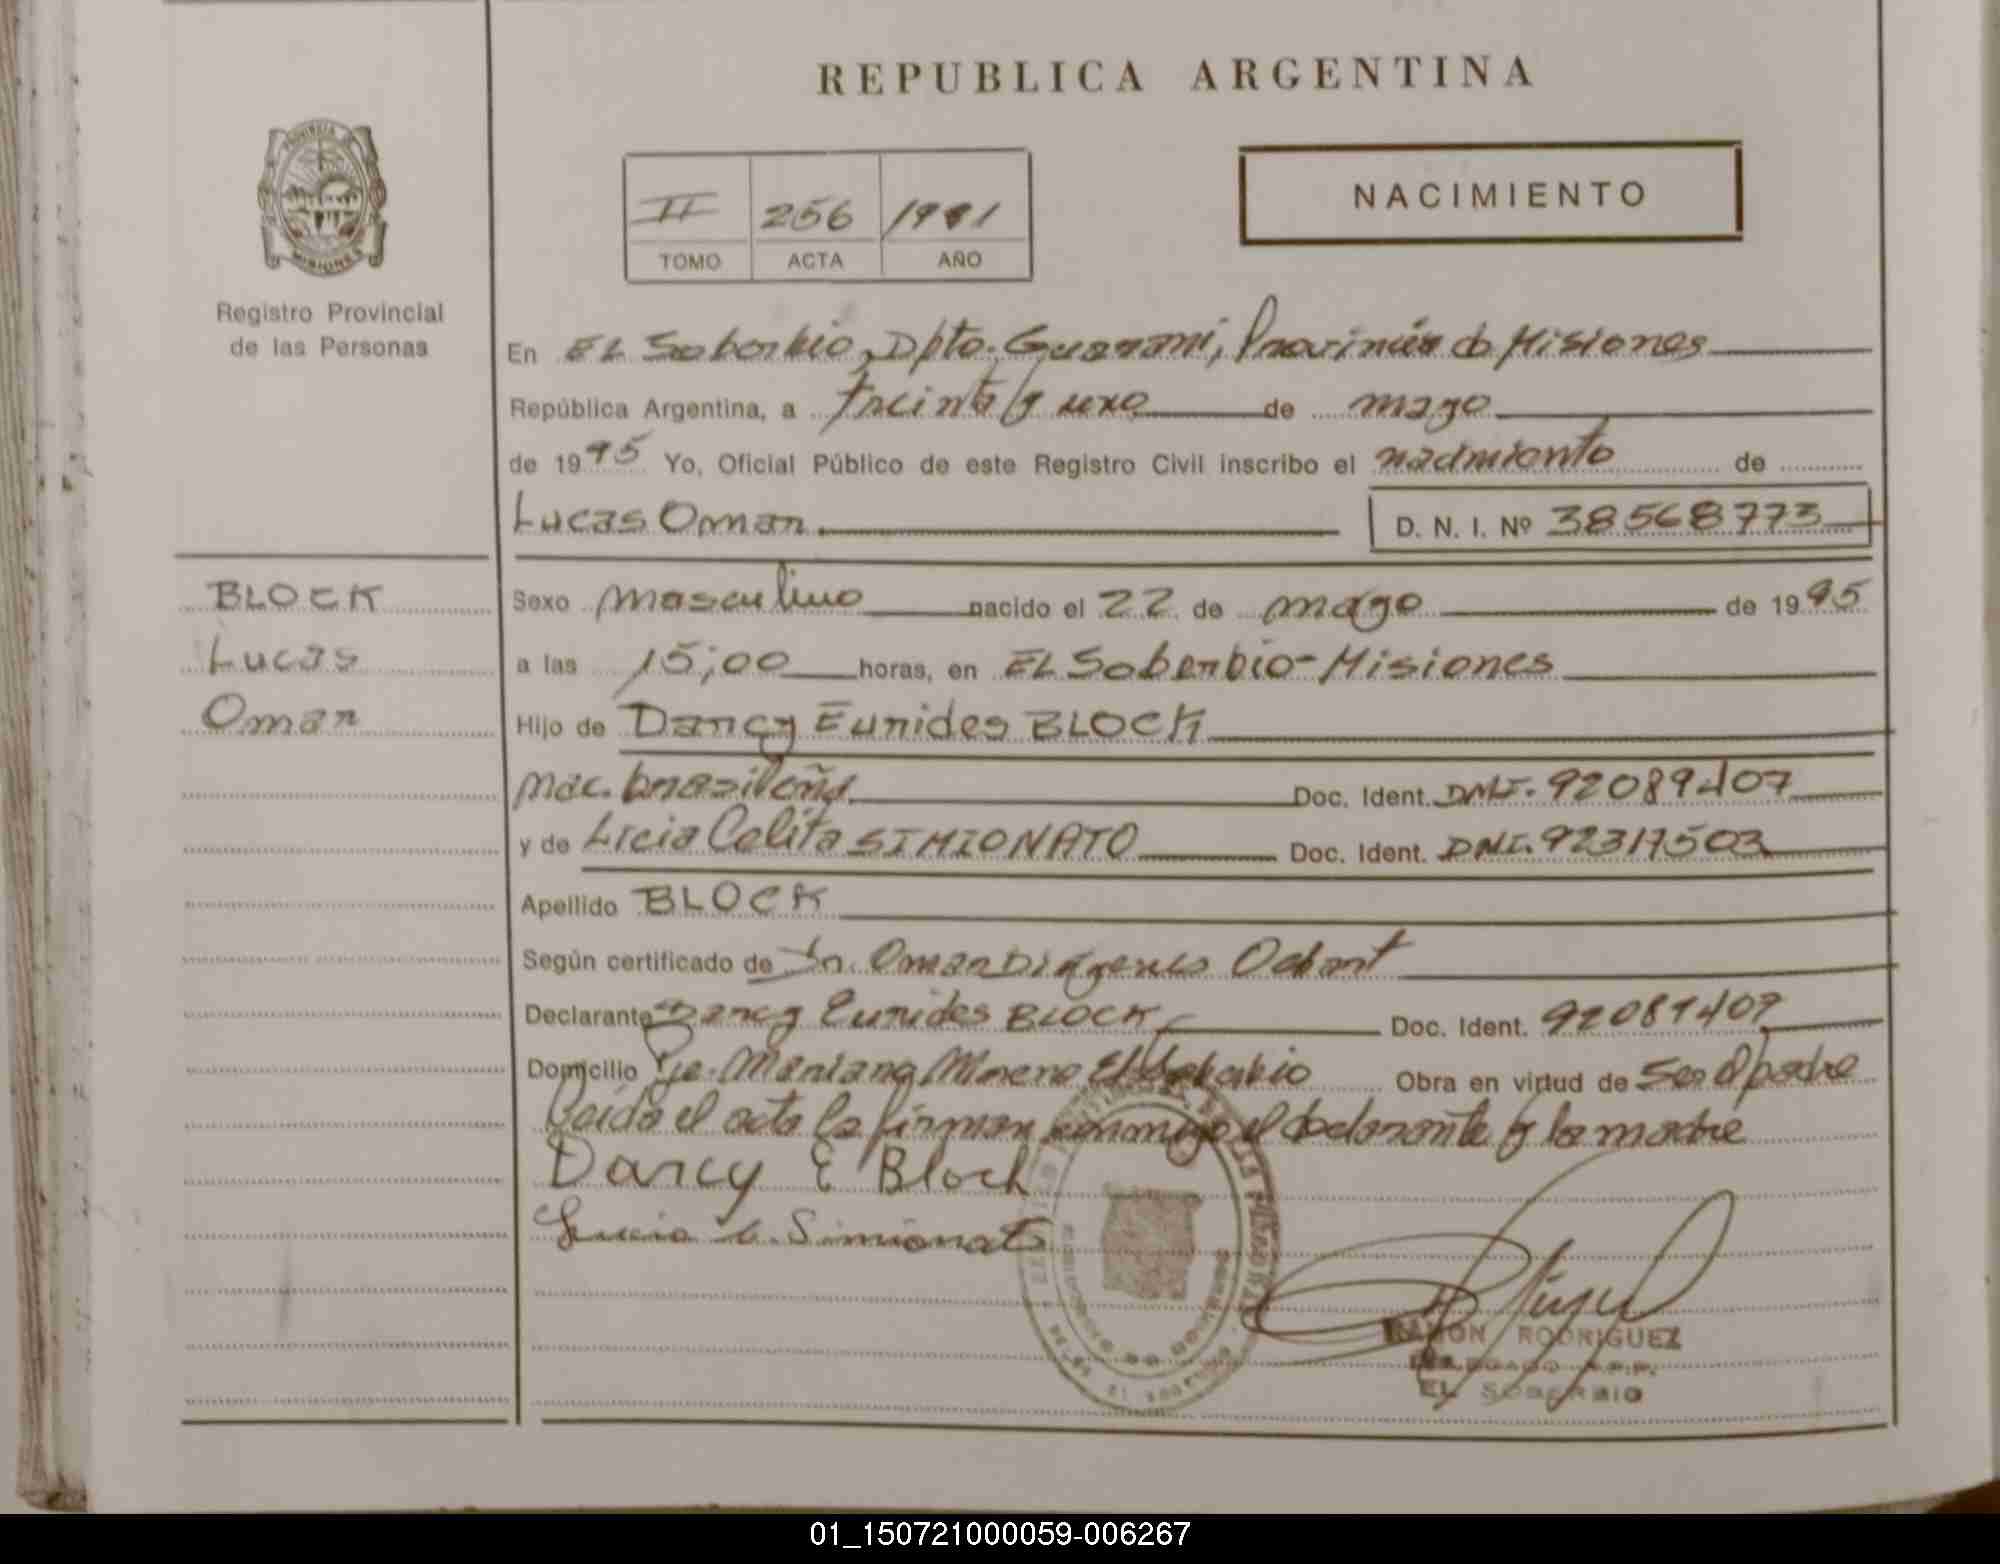 REPUBLICA ARGENTINA
PROVINCIA DE
MISIONES
Registro Provincial
de las Personas
II 256
TOMO ACTA AÑO
NACIMIENTO
En EL Soberbio, Dpto. Guaraní, Provincia de Misiones
República Argentina, a treinta y uno de mayo
de 1995 Yo, Oficial Público de este Registro Civil inscribo el nacimiento de
Lucas Omar. D. N. I. Nº 38568773
BLOCK
Lucas
Omar
Sexo masculino nacido el 22 de mayo de 1995
a las 15;00 horas, en EL Soberbio-Misiones
Hijo de Darcy Eurides BLOCK
nac. brasileña Doc. Ident. DNI. 92089407
y de Licia Celita SIMIONATO Doc. Ident. DNI. 92317503
Apellido BLOCK
Según certificado de Dr. Omar
Declarante Darcy Eurides BLOCK Doc. Ident.
Domicilio Mariano Moreno El Soberbio Obra en virtud de Ser el padre
Leída el acta la firman conmigo el declarante y la madre
Darcy E Bloch
C. Simionato
RAMON RODRIGUEZ
EL SOBERBIO
01_150721000059-006267